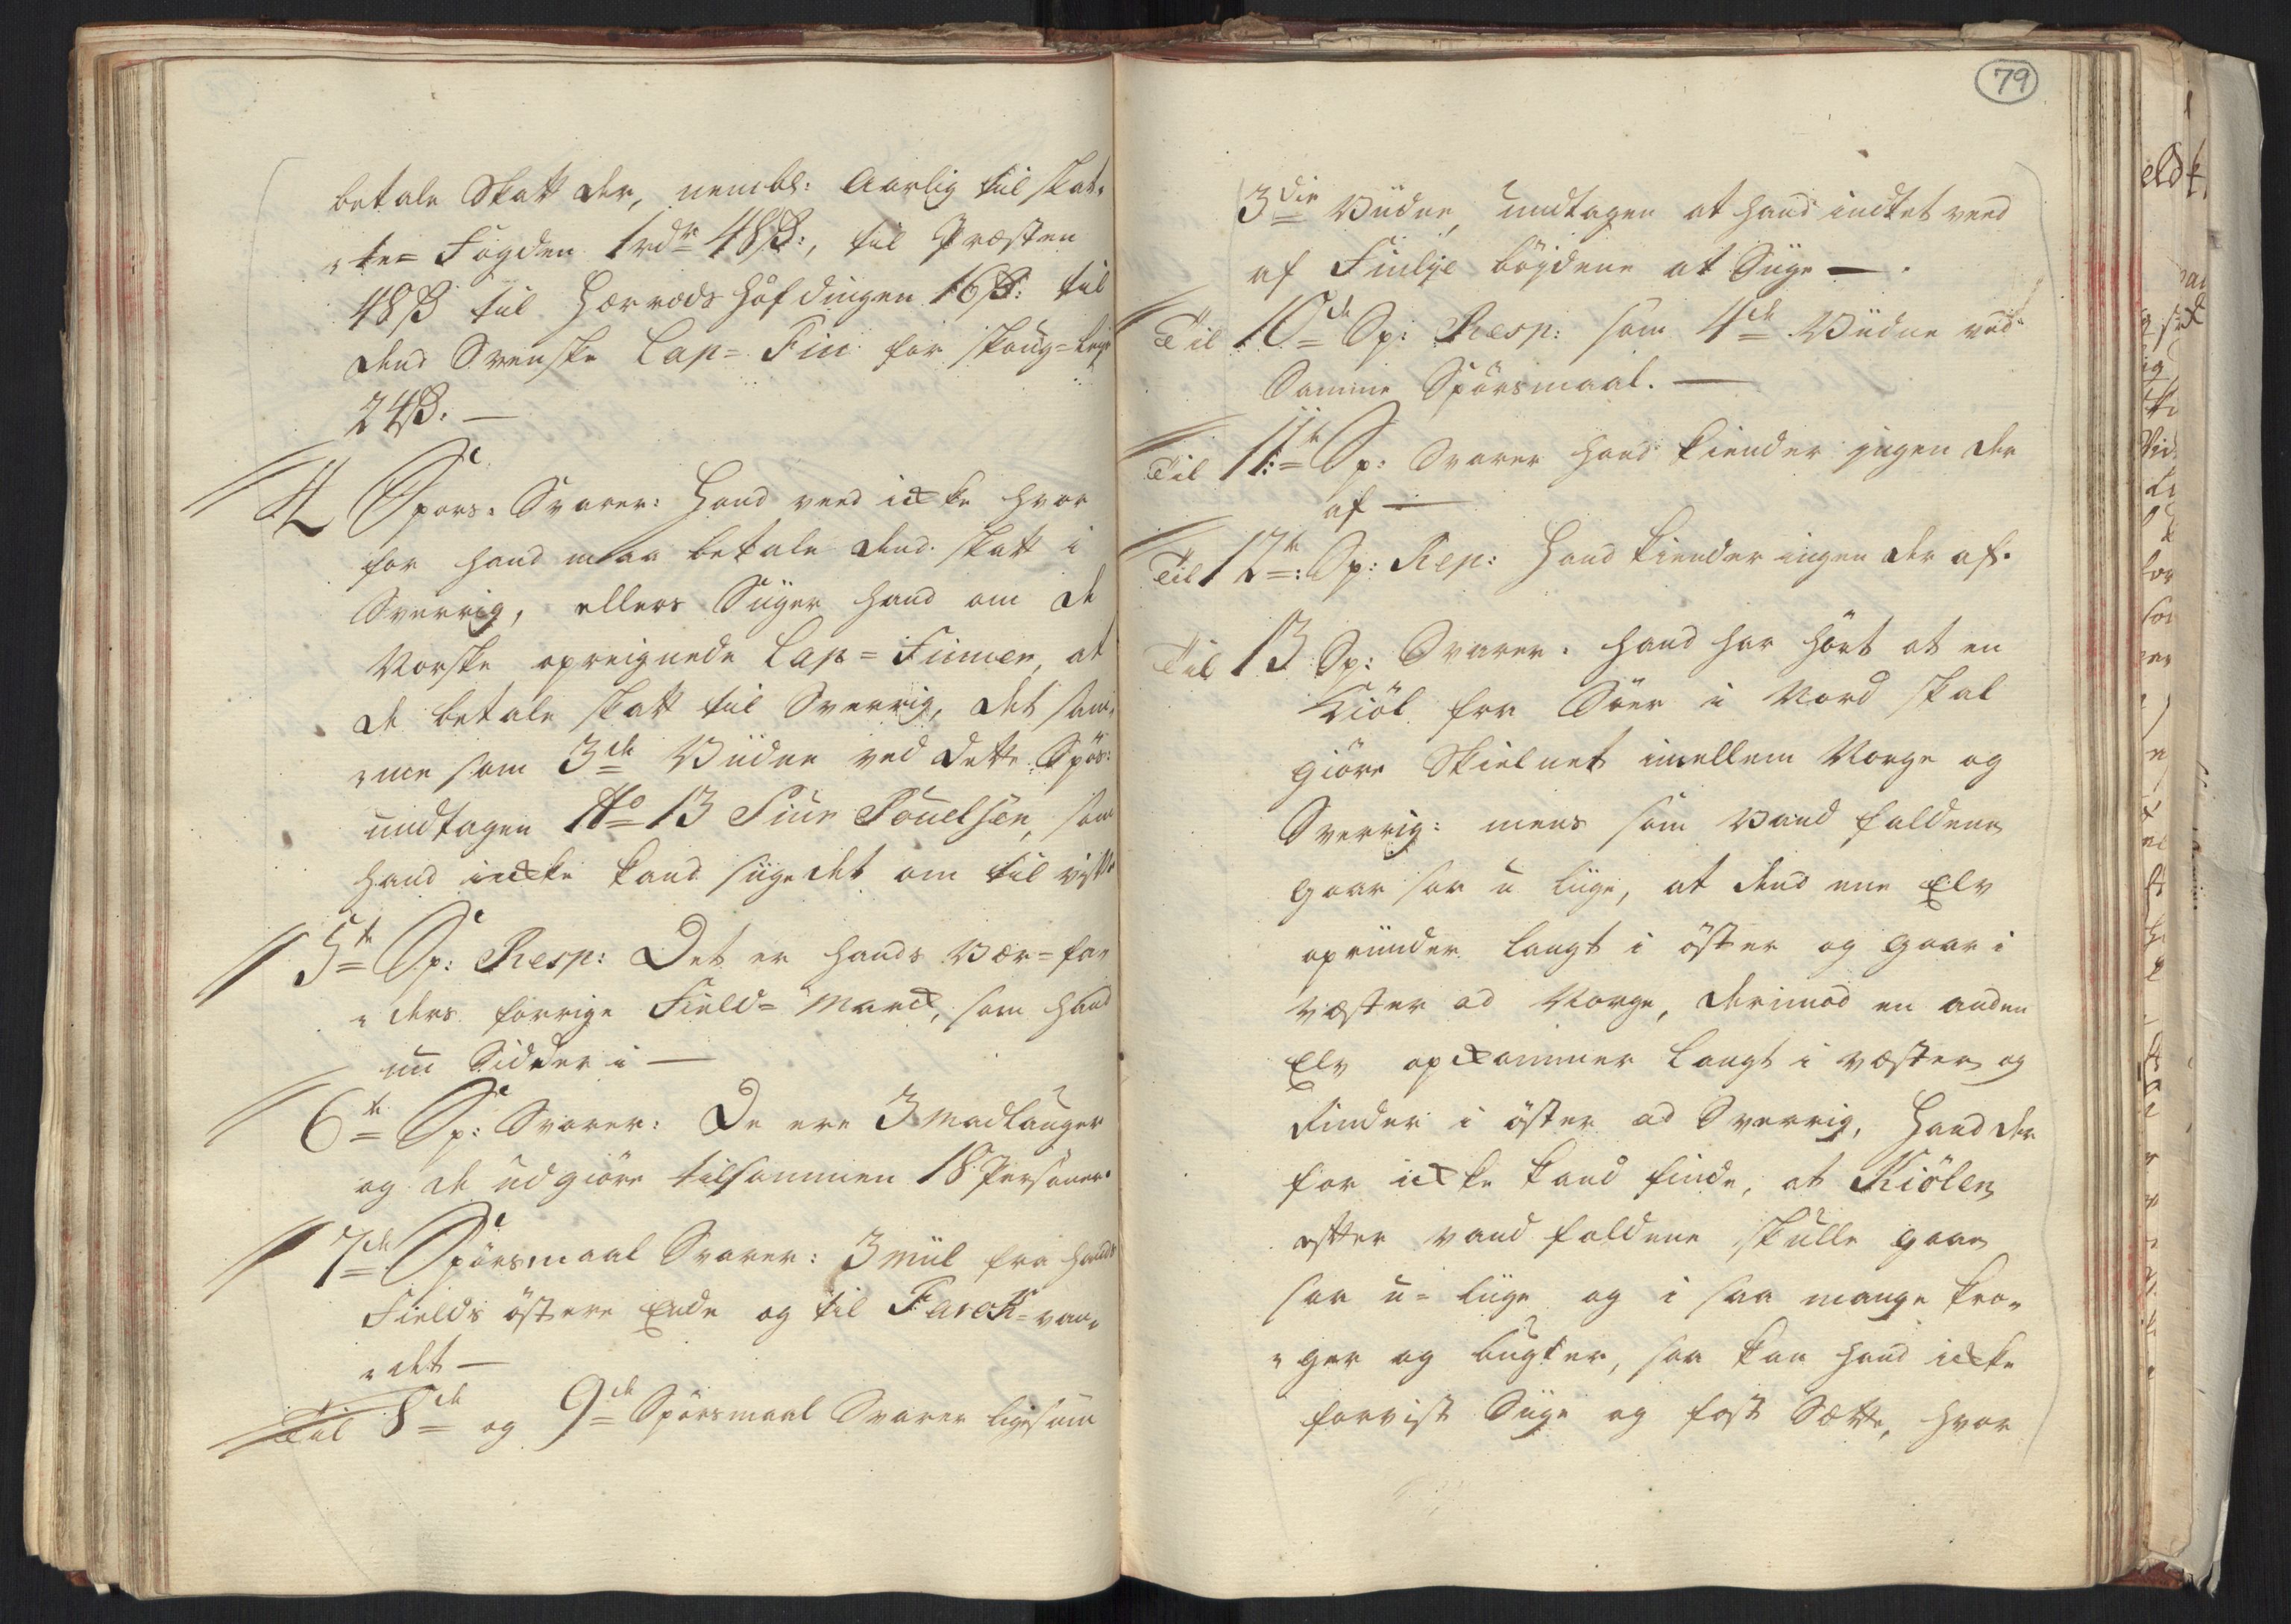 betale Skatt der, nembl: Aarlig til skat„
„te= Fogden 1rdr 48ß:, til Præsten
48ß til Hærrods höfdingen 16ß: til
dend Svenske Lap= Fin for skoug=leye
24ß. —
4 Spors: Svarer: Hand veed icke hvor
for hand maa betale dend skatt i
Sverrig, ellers Siiger hand om de
Norske opreignede Lap=Finner, at
de betale skatt til Sverrig, det sam„
„me som 3de Viidne ved dette Spörs:
undtagen No 13 Siur Pouelsen, som
hand incke kand siige det om til vist.
5te Sp: Resp: Det er hands Vær=for
„ders forrige Field= Marck, som hand
nu Sidder i —
6te Sp: Svarer: De ere 3 Madlauger
og de udgiöre tilsammen 18 Personer.
7de Spörsmaal Svarer: 3 Miil fra hands
Fields östere Ende og til Farok=van„
„det —
Til 8de og 9de Spörsmaal Svarer ligesom
79
3die Viidne, undtagen at hand indtet veed
af Finlye böydene at Siige — .
Til 10de Sp: Resp: som 4de Viidne ved
Samme Spörsmaal. —
Til 11te Sp: Svarer hand kiender ingen der
af —
Til 12te: Sp: Resp: Hand kiender ingen der af.
Til 13 Sp: Svarer: hand har hört at en
Kiöl fra Söer i Nord skal
giöre Skielnet imellem Norge og
Sverrig: mens som Vand faldene
gaar saa u liige, at dend ene Elv
oprinder langt i öster og gaar i
væster ad Norge, derimod en anden
Elv opkommer langt i væster og
rinder i öster ad Sverrig, Hand der
for icke kand finde, at Kiölen
efter vand faldene skulle gaae
saa u= liige og i saa mange kro„
„ger og bugter, saa kan hand icke
for vist Siige og fast Sætte, hvor